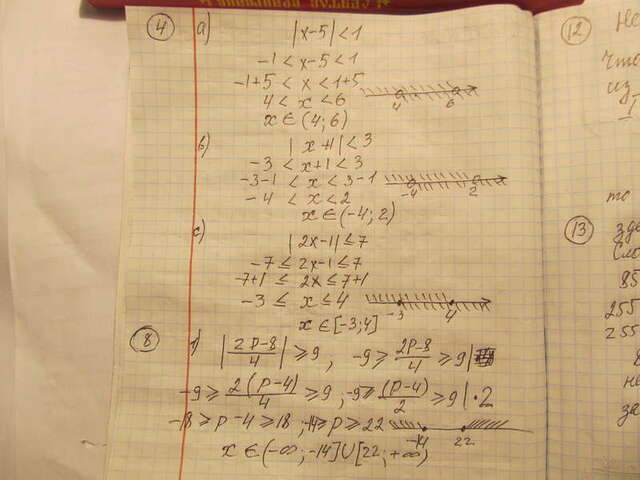 4 a) |x-5|<1
-1<x-5<1
-1+5<x<1+5
4<x<6
4 6
x∈(4;6)
b) |x+1|<3
-3<x+1<3
-3-1<x<3-1
-4 2
-4<x<2
x∈(-4;2)
c) |2x-1|≤7
-7≤2x-1≤7
-7+1≤2x≤7+1
-3≤x≤4
-3 4
x∈[-3;4]
8 |2p-8/4|≥9, -9≥2p-8/4≥9|
-9≥2(p-4)/4≥9, -9≥(p-4)/2≥9|·2
-18≥p-4≥18, -14≥p≥22
-14 22
x∈(-∞;-14]∪[22;+∞)
12
что
из
то
13
85
255
255
за